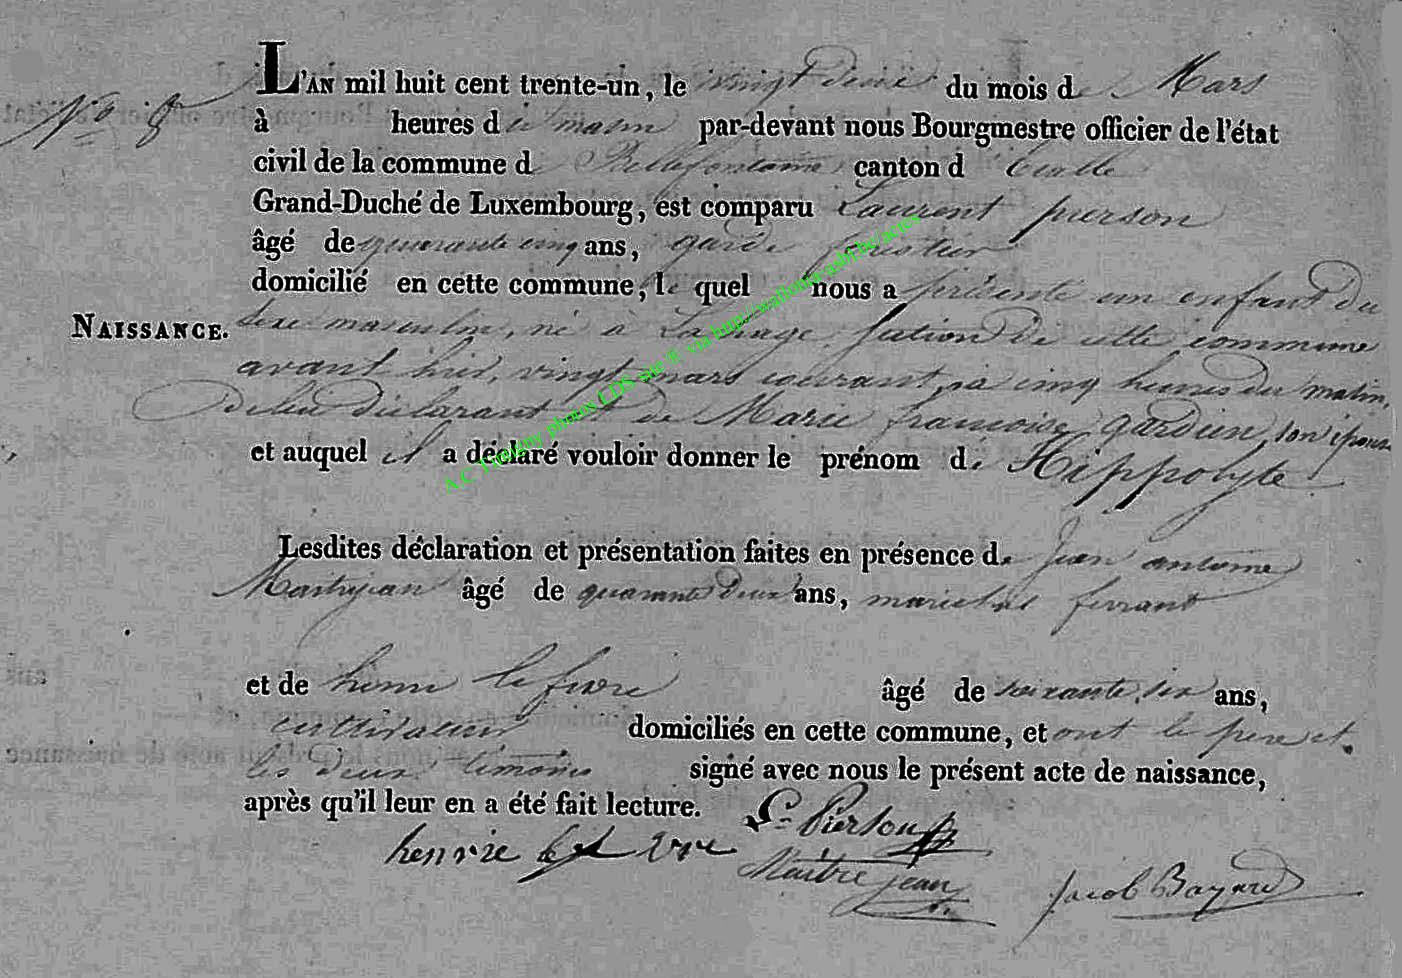 L'AN mil huit cent trente-un, le vingt deux du mois de Mars
No 8
à heures du matin par-devant nous Bourgmestre officier de l'état
civil de la commune de Bellefontaine canton d'Etalle
Grand-Duché de Luxembourg, est comparu Laurent pierson
âgé de quarante cinq ans, garde forestier
domicilié en cette commune, le quel nous a présenté un enfant du
NAISSANCE.
sexe masculin, né à Lahage, section de cette commune
avant hier, vingt mars courant, à cinq heures du matin,
de lui déclarant et de Marie françoise gardien, son épouse
et auquel il a déclaré vouloir donner le prénom de Hippolyte
Lesdites déclaration et présentation faites en présence de Jean antoine
Maitrejean âgé de quarante deux ans, marechal ferrant
et de henri lefevre âgé de soixante six ans,
cultivateur domiciliés en cette commune, et ont le pere et
les deux témoins signé avec nous le présent acte de naissance,
après qu'il leur en a été fait lecture.
L. Pierson
henrie
Maître jean
Jacob Bayard
A.C Tintigny photos LDS via http://wallonia-asbl.be/actes